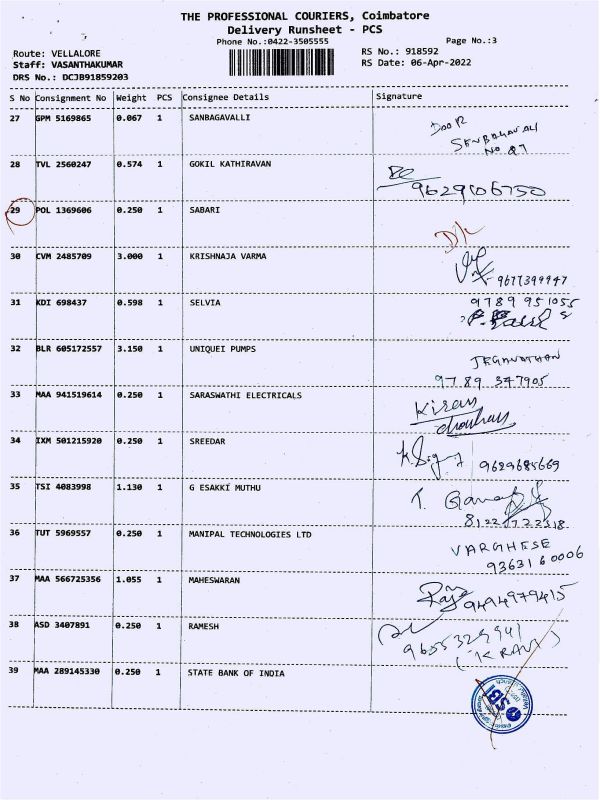 THE PROFESSIONAL COURIERS, Coimbatore
Delivery Runsheet - PCS
Phone No.:0422-3505555
Page No.:3
Route: VELLALORE
RS No.: 918592
Staff: VASANTHAKUMAR
RS Date: 06-Apr-2022
DRS No.: DCJB91859203
S No Consignment No Weight PCS Consignee Details Signature
27 GPM 5169865 0.067 1 SANBAGAVALLI
Door
SENBAGAVALI
No 87
28 TVL 2560247 0.574 1 GOKIL KATHIRAVAN
9629106750
29 POL 1369606 0.250 1 SABARI
D/L
30 CVM 2485709 3.000 1 KRISHNAJA VARMA
9677399947
31 KDI 698437 0.598 1 SELVIA
9789951055
32 BLR 605172557 3.150 1 UNIQUEI PUMPS
JEGANATHAN
9789 347905
33 MAA 941519614 0.250 1 SARASWATHI ELECTRICALS
Kiran
choudhary
34 IXM 501215920 0.250 1 SREEDAR
9629685669
35 TSI 4083998 1.130 1 G ESAKKI MUTHU
36 TUT 5969557 0.250 1 MANIPAL TECHNOLOGIES LTD
VARGHESE
9363160006
37 MAA 566725356 1.055 1 MAHESWARAN
9494979415
38 ASD 3407891 0.250 1 RAMESH
9655329941
(K RAVI)
39 MAA 289145330 0.250 1 STATE BANK OF INDIA
SBI